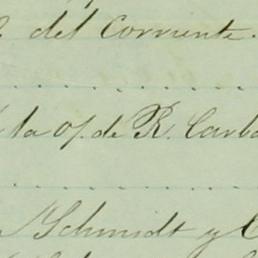 del Corriente.
la of. de R. Carb
Schmidt y C